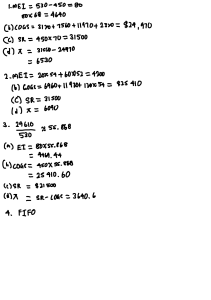 1. MEI = 530-450 = 80
80 x 68 = 4640
(b) COGS = 3120 + 7560 + 11970 + 2320 = $24,970
(c) SR = 450 x 70 = 31500
(d) π = 31500 - 24970
= 6530
2. MEI = 20x54 + 60x52 = 4200
(b) COGS = 6960 + 11930 + 120x54 = $25 410
(c) SR = 31500
(d) π = 6090
3. 29610/530 = 55.868
(a) EI = 80x55.868
= 4469.44
(b) COGS = 450x55.868
= 25 140.60
(c) SR = $31500
(d) π = SR - COGS = 3640.6
4. FIFO